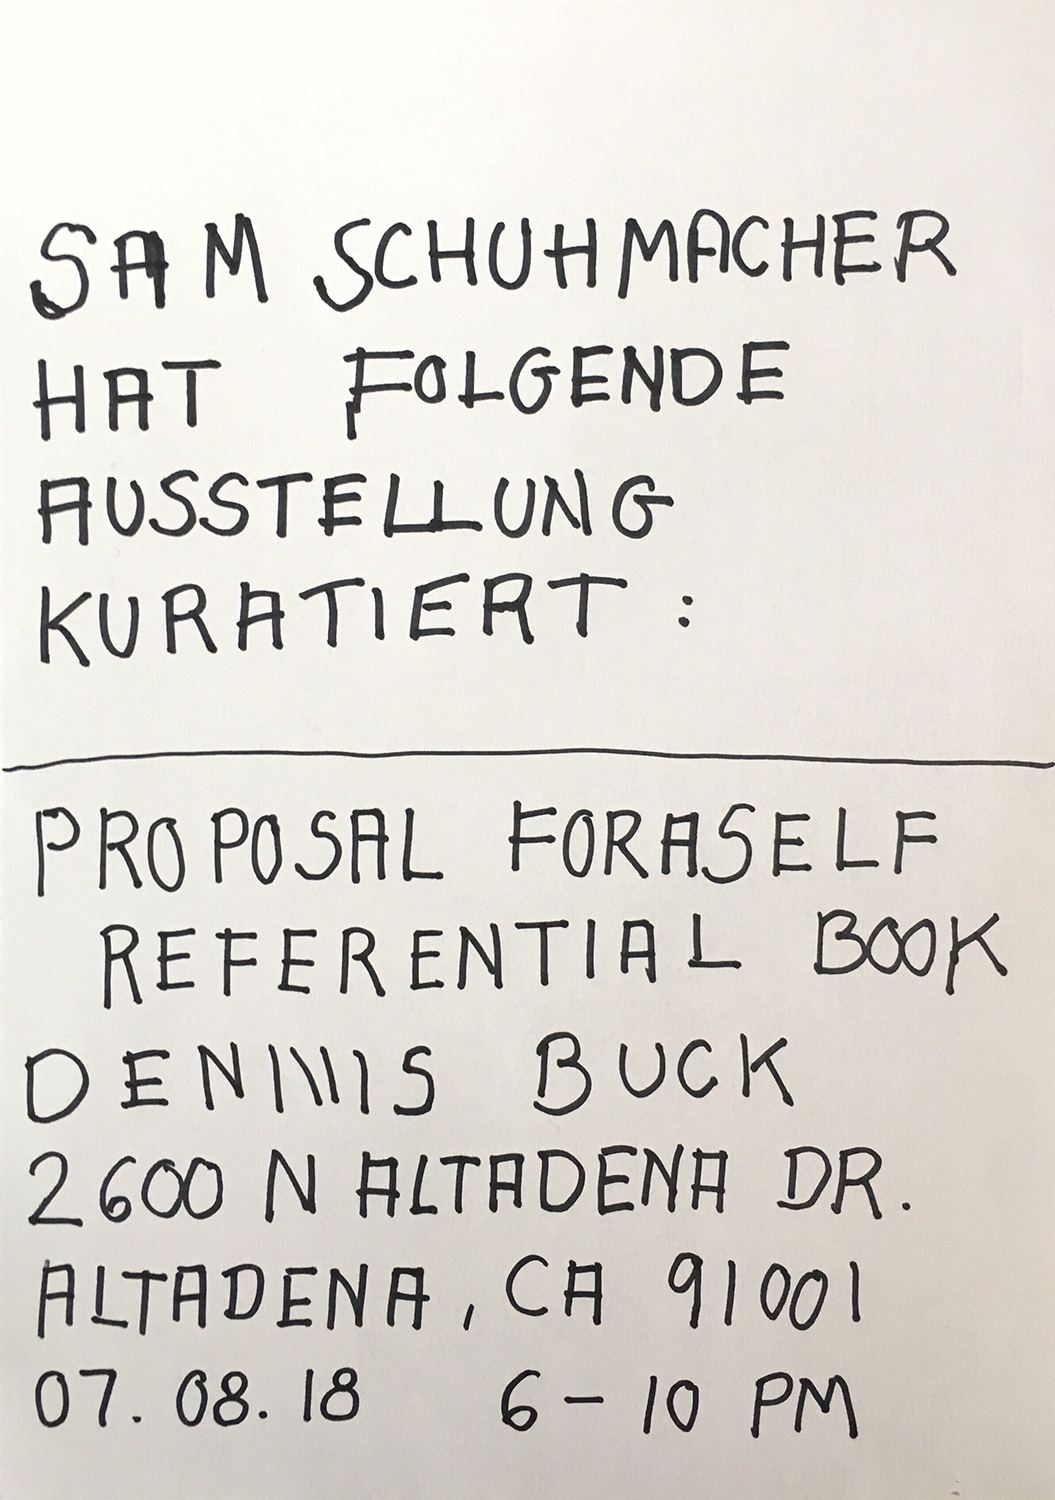 SAM SCHUHMACHER
HAT FOLGENDE
AUSSTELLUNG
KURATIERT :
PROPOSAL FORASELF
REFERENTIAL BOOK
DENNIS BUCK
2600 N ALTADENA DR.
ALTADENA, CA 91001
07. 08. 18 6 – 10 PM